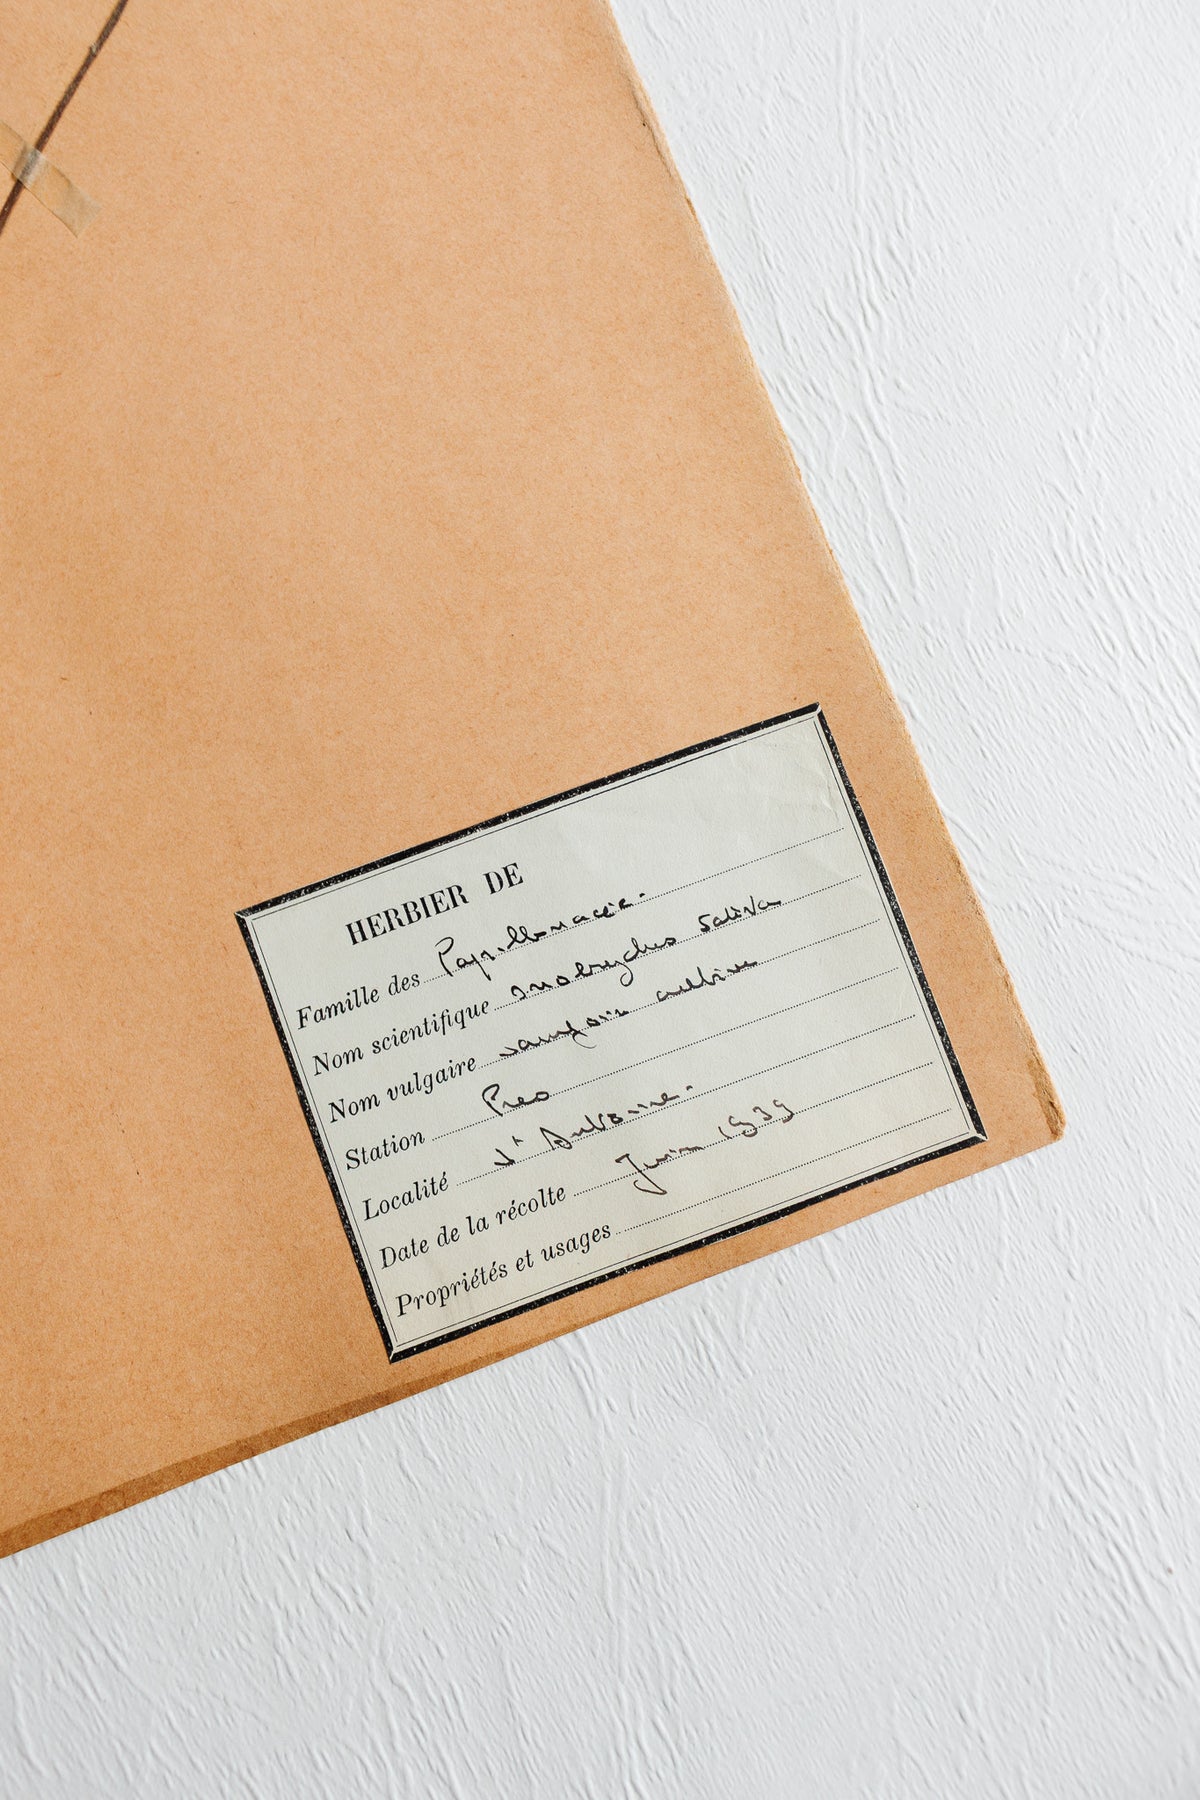 HERBIER DE
Famille des Papillonacée.
Nom scientifique onobrychis sativa
Nom vulgaire sainfoin cultivé
Station Pres
Localité St Antoine.
Date de la récolte Juin 1939
Propriétés et usages